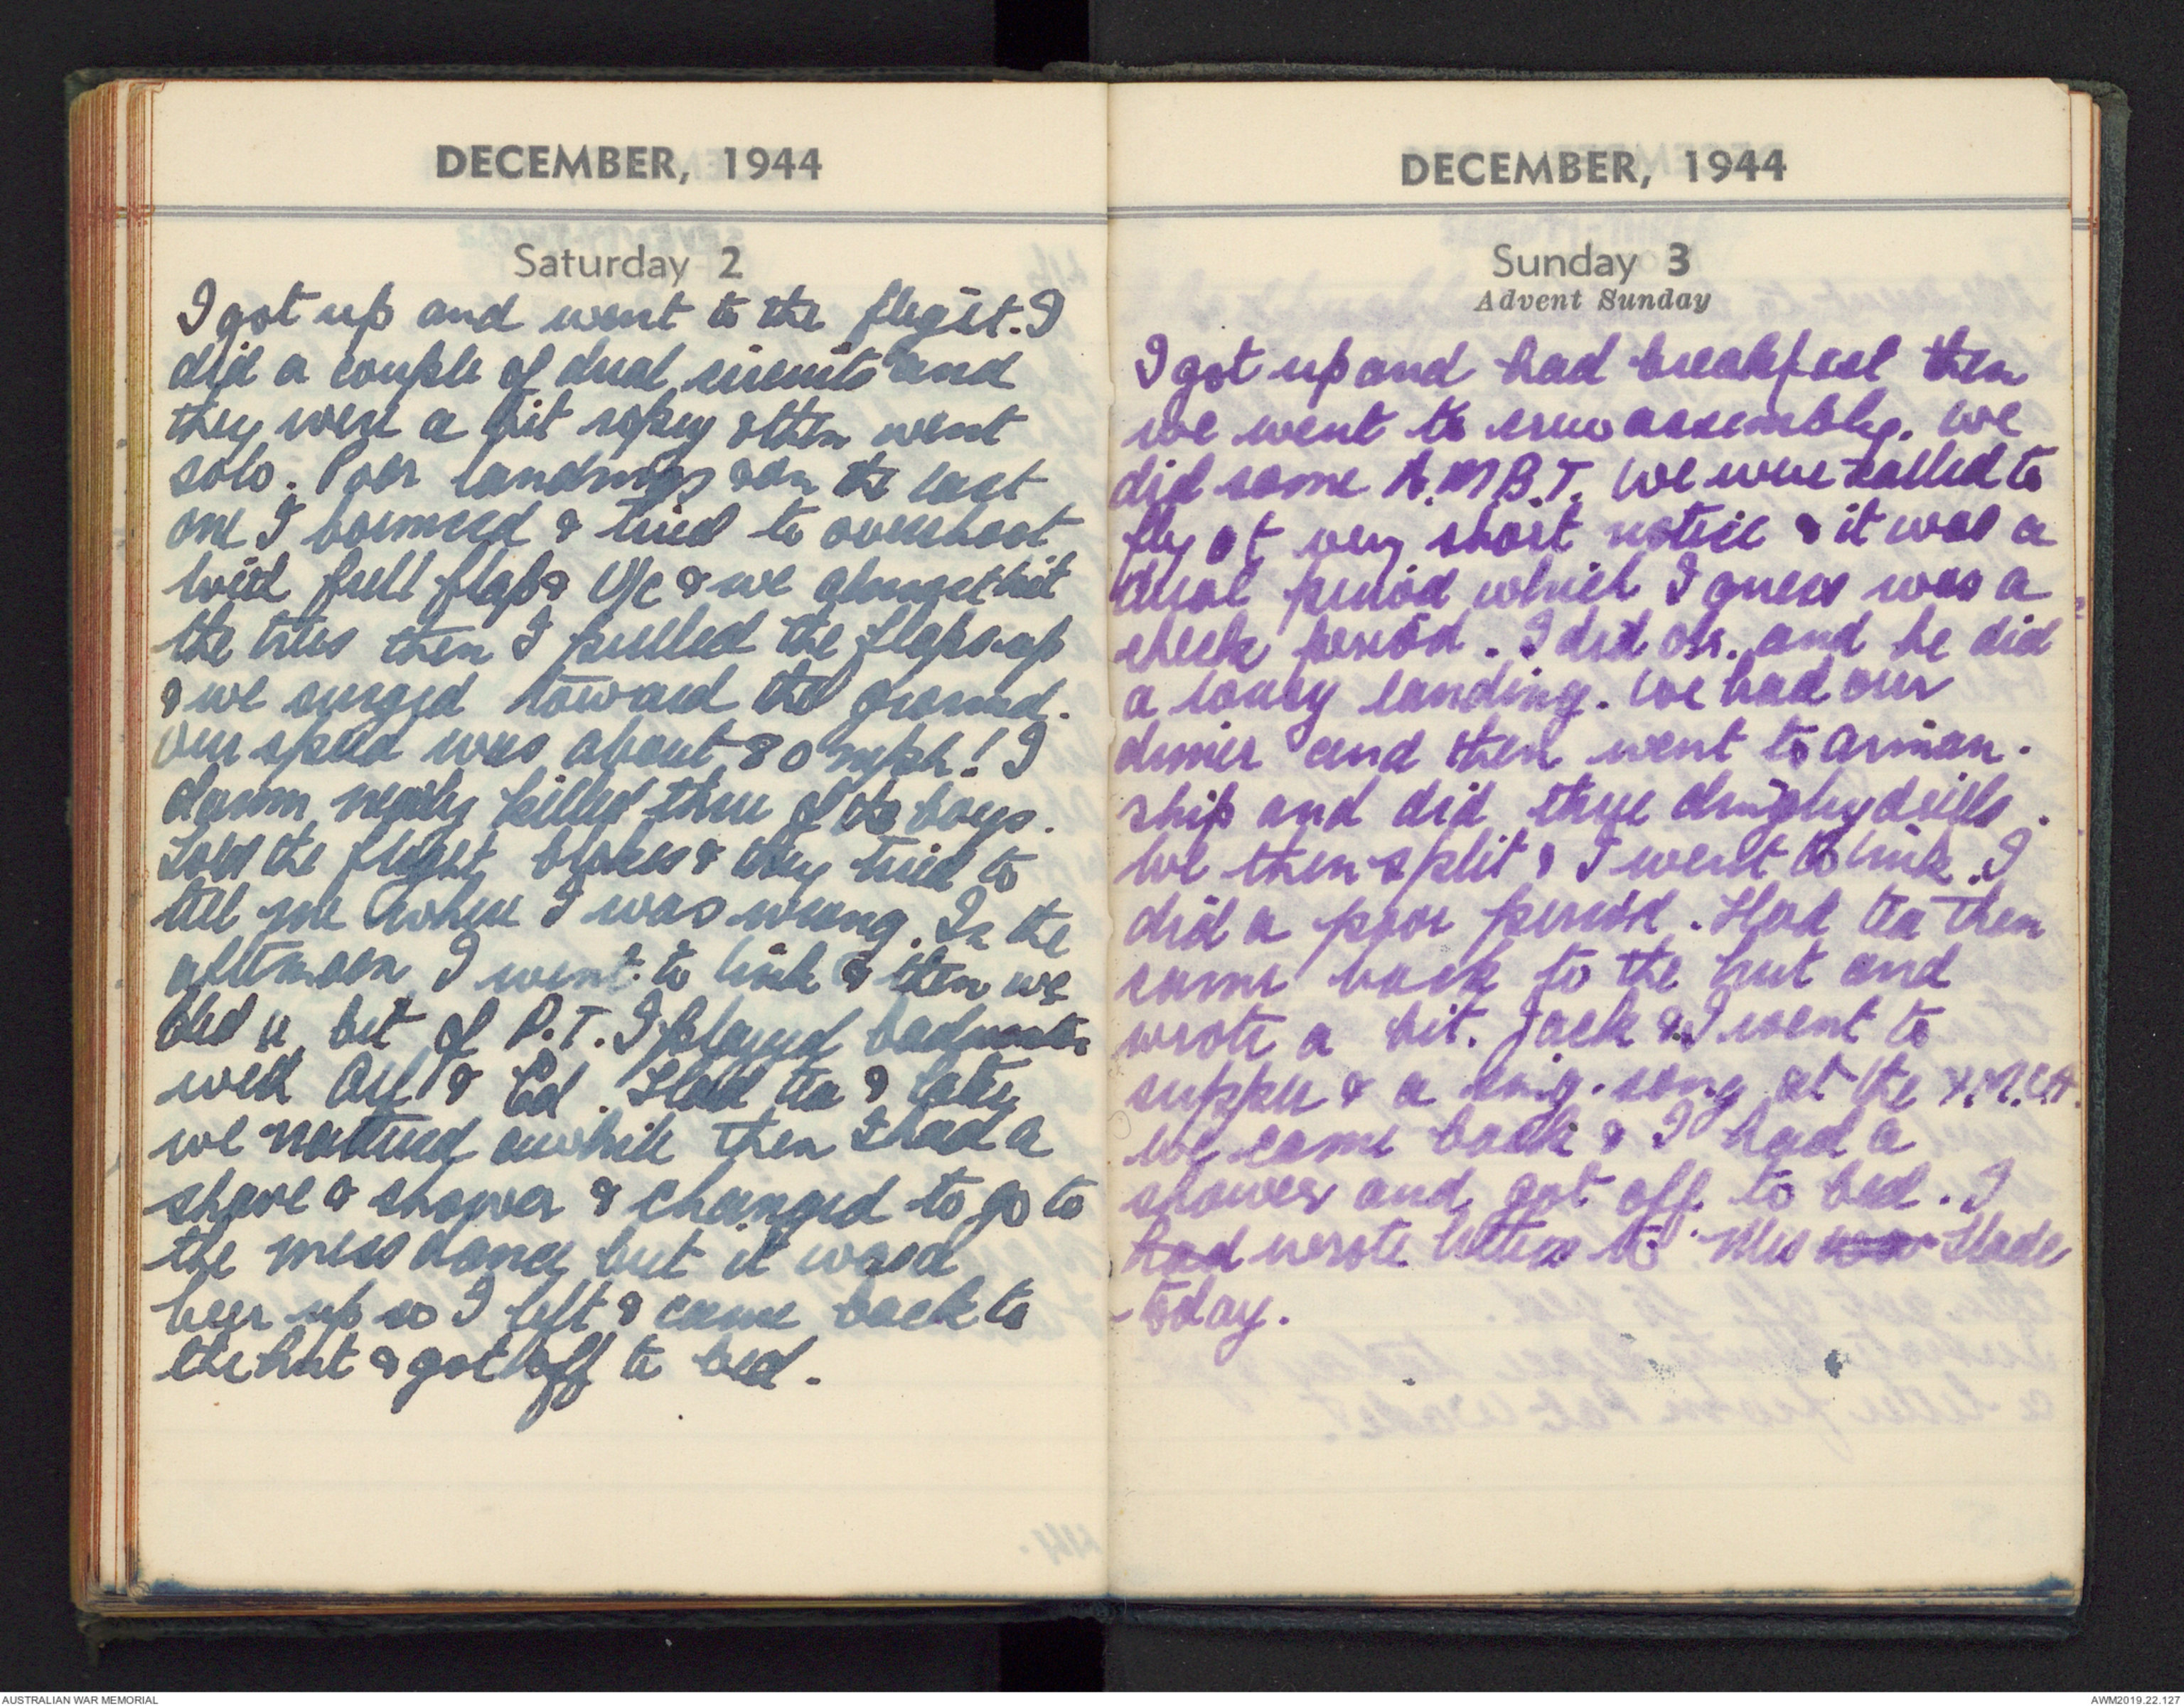 DECEMBER, 1944
Saturday 2
I got up and went to the flight. I
did a couple of dual circuits and
they were a bit ropey & then went
solo. Poor landings & on the last
one I bounced & tried to overshoot
with full flaps & U/c & we almost hit
the trees then I pulled the flaps up
& we surged toward the ground.
Our speed was about 80 mph! I
damn nearly killed three of the boys.
Told the flight blokes & they tried to
tell me where I was wrong. In the
afternoon I went to link & then we
did a bit of P.T. I played badminton
with Alf & Ed. Had tea & later
we nattered awhile then I had a
shave & shower & changed to go to
the mess dance but it was a
beer up so I left & came back to
the hut & got off to bed.
DECEMBER, 1944
Sunday 3
Advent Sunday
I got up and had breakfast then
we went to crew assembly. We
did some A.M.B.T. We were called to
fly at very short notice & it was a
dual period which I guess was a
check period. I did ok. and he did
a lousy landing. We had our
dinner and then went to airman-
ship and did three dinghy drills.
We then split & I went to link. I
did a poor period. Had tea then
came back to the hut and
wrote a bit. Jack & I went to
supper & a sing-song at the Y.M.C.A.
We came back & I had a
shower and got off to bed. I
had wrote letters to Mrs Slade
today.
AUSTRALIAN WAR MEMORIAL
AWM2019.22.127